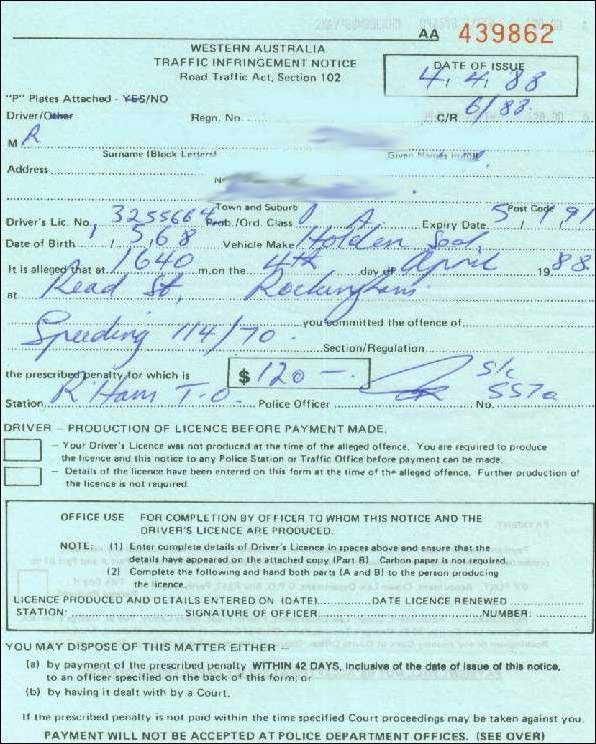 AA 439862
WESTERN AUSTRALIA
TRAFFIC INFRINGEMENT NOTICE
Road Traffic Act, Section 102
DATE OF ISSUE
4. 4. 88
"P" Plates Attached - YES/NO
6/88
Driver/Other Regn. No. C/R
M R
Surname (Block Letters) Given Names in full
Address
Town and Suburb Post Code
Driver's Lic. No. 3255664 Prob./Ord. Class A Expiry Date 5 / 91
Date of Birth 1/5/68 Vehicle Make Holden
It is alleged that at 1640 m. on the 4th day of April 1988
at Read St, Rockingham
you committed the offence of
Speeding 114/70. Section/Regulation
the prescribed penalty for which is $120 —. S/c
Station R'Ham T.O Police Officer No. 557a
DRIVER – PRODUCTION OF LICENCE BEFORE PAYMENT MADE.
– Your Driver's Licence was not produced at the time of the alleged offence. You are required to produce
the licence and this notice to any Police Station or Traffic Office before payment can be made.
– Details of the licence have been entered on this form at the time of the alleged offence. Further production of
the licence is not required.
OFFICE USE FOR COMPLETION BY OFFICER TO WHOM THIS NOTICE AND THE
DRIVER'S LICENCE ARE PRODUCED:
NOTE: (1) Enter complete details of Driver's Licence in spaces above and ensure that the
details have appeared on the attached copy (Part B) Carbon paper is not required.
(2) Complete the following and hand both parts (A and B) to the person producing
the licence.
LICENCE PRODUCED AND DETAILS ENTERED ON (DATE) DATE LICENCE RENEWED
STATION: SIGNATURE OF OFFICER NUMBER:
YOU MAY DISPOSE OF THIS MATTER EITHER –
(a) by payment of the prescribed penalty WITHIN 42 DAYS, inclusive of the date of issue of this notice,
to an officer specified on the back of this form; or
(b) by having it dealt with by a Court.
If the prescribed penalty is not paid within the time specified Court proceedings may be taken against you.
PAYMENT WILL NOT BE ACCEPTED AT POLICE DEPARTMENT OFFICES. (SEE OVER)